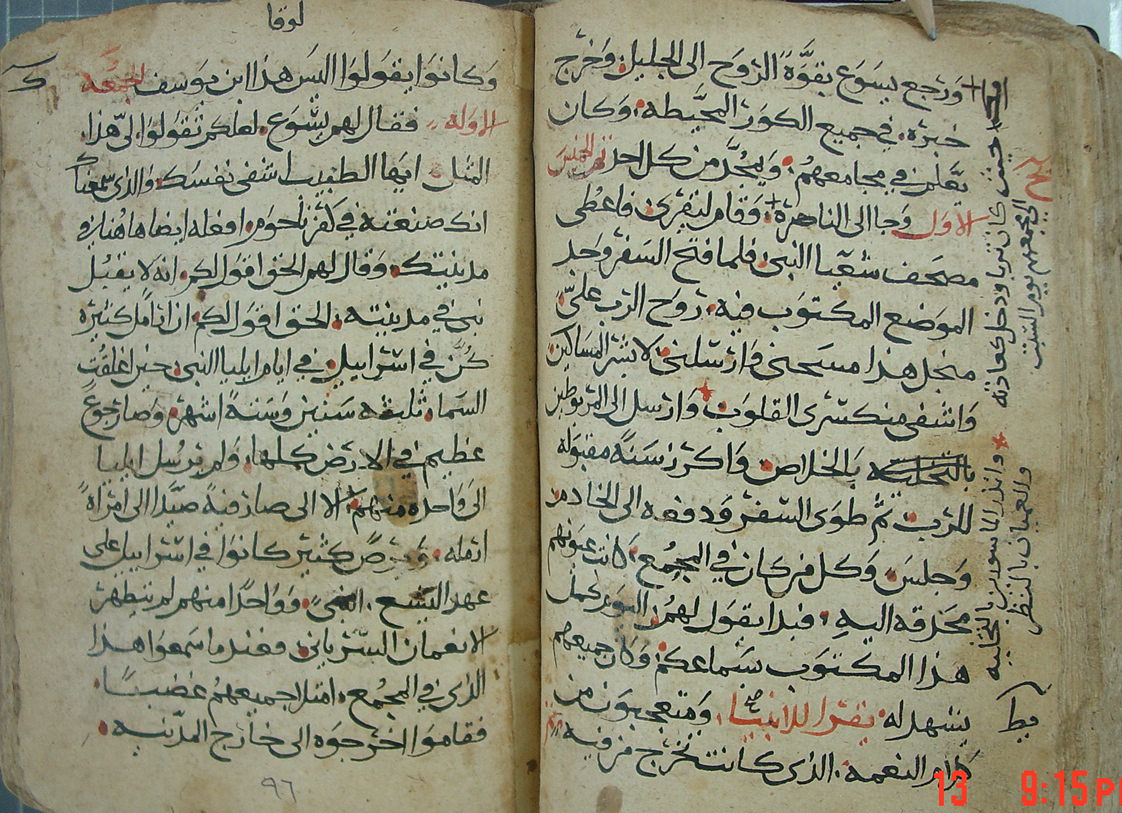 ورجع يسوع بقوة الروح الى الجليل وخرج
خبره في جميع الكور المحيطه وكان
يعلم في مجامعهم ويمجد من كل احد
الاول وجا الى الناصرة وقام ليقرى فاعطى
مصحف شعيا النبي فلما فتح السفر وجد
الموضع المكتوب فيه روح الرب علي
منجل هذا مسحني وارسلني لابشر المساكين
واشفي منكسرى القلوب وارسل الى المربوطين
بالتخليه بالخلاص واكرز سنة مقبوله
للرب ثم طوى السفر ودفعه الى الخادم
وجلس وكل من كان في المجمع كانت عيونهم
محدقه اليه فبدا يقول لهم اليوم كمل
هذا المكتوب بسماعكم وكان جميعهم
يشهد له يقرا للانبيا ومتعجبون من
كلام النعمه الذي كانت تخرج من فيه
حيث كان تربا ودخل كعادته
الى مجمعهم يوم السبت
وانذر الماسورين بالتخليه
والعميان بالنظر
يط
لوقا
ك
وكانوا يقولوا اليس هذا ابن يوسف الجمعه
الاوله فقال لهم يسوع لعلكم تقولوا لي هذا
المثل ايها الطبيب اشفي نفسك والذي سمعنا
انك صنعته في كفرناحوم افعله ايضا هاهنا في
مدينتك وقال لهم الحق اقول لكم انه لا يقبل
نبي في مدينته الحق اقول لكم ان ارامل كثيره
كن في اسراييل في ايام ايليا النبي حين اغلقت
السماء ثلثه سنين وستة اشهر وصار جوع
عظيم في الارض كلها ولم يرسل ايليا
الى واحده منهم الا الى صارفية صيدا الى امراة
ارمله وبرص كثير كانوا في اسراييل على
عهد اليشع النبي وواحدا منهم لم يتطهر
الا نعمان السرياني فعندما سمعوا هذا
الذي في المجمع امتلا جميعهم غضبا
فقاموا اخرجوه الى خارج المدينه
٩٦
13 9:15 P